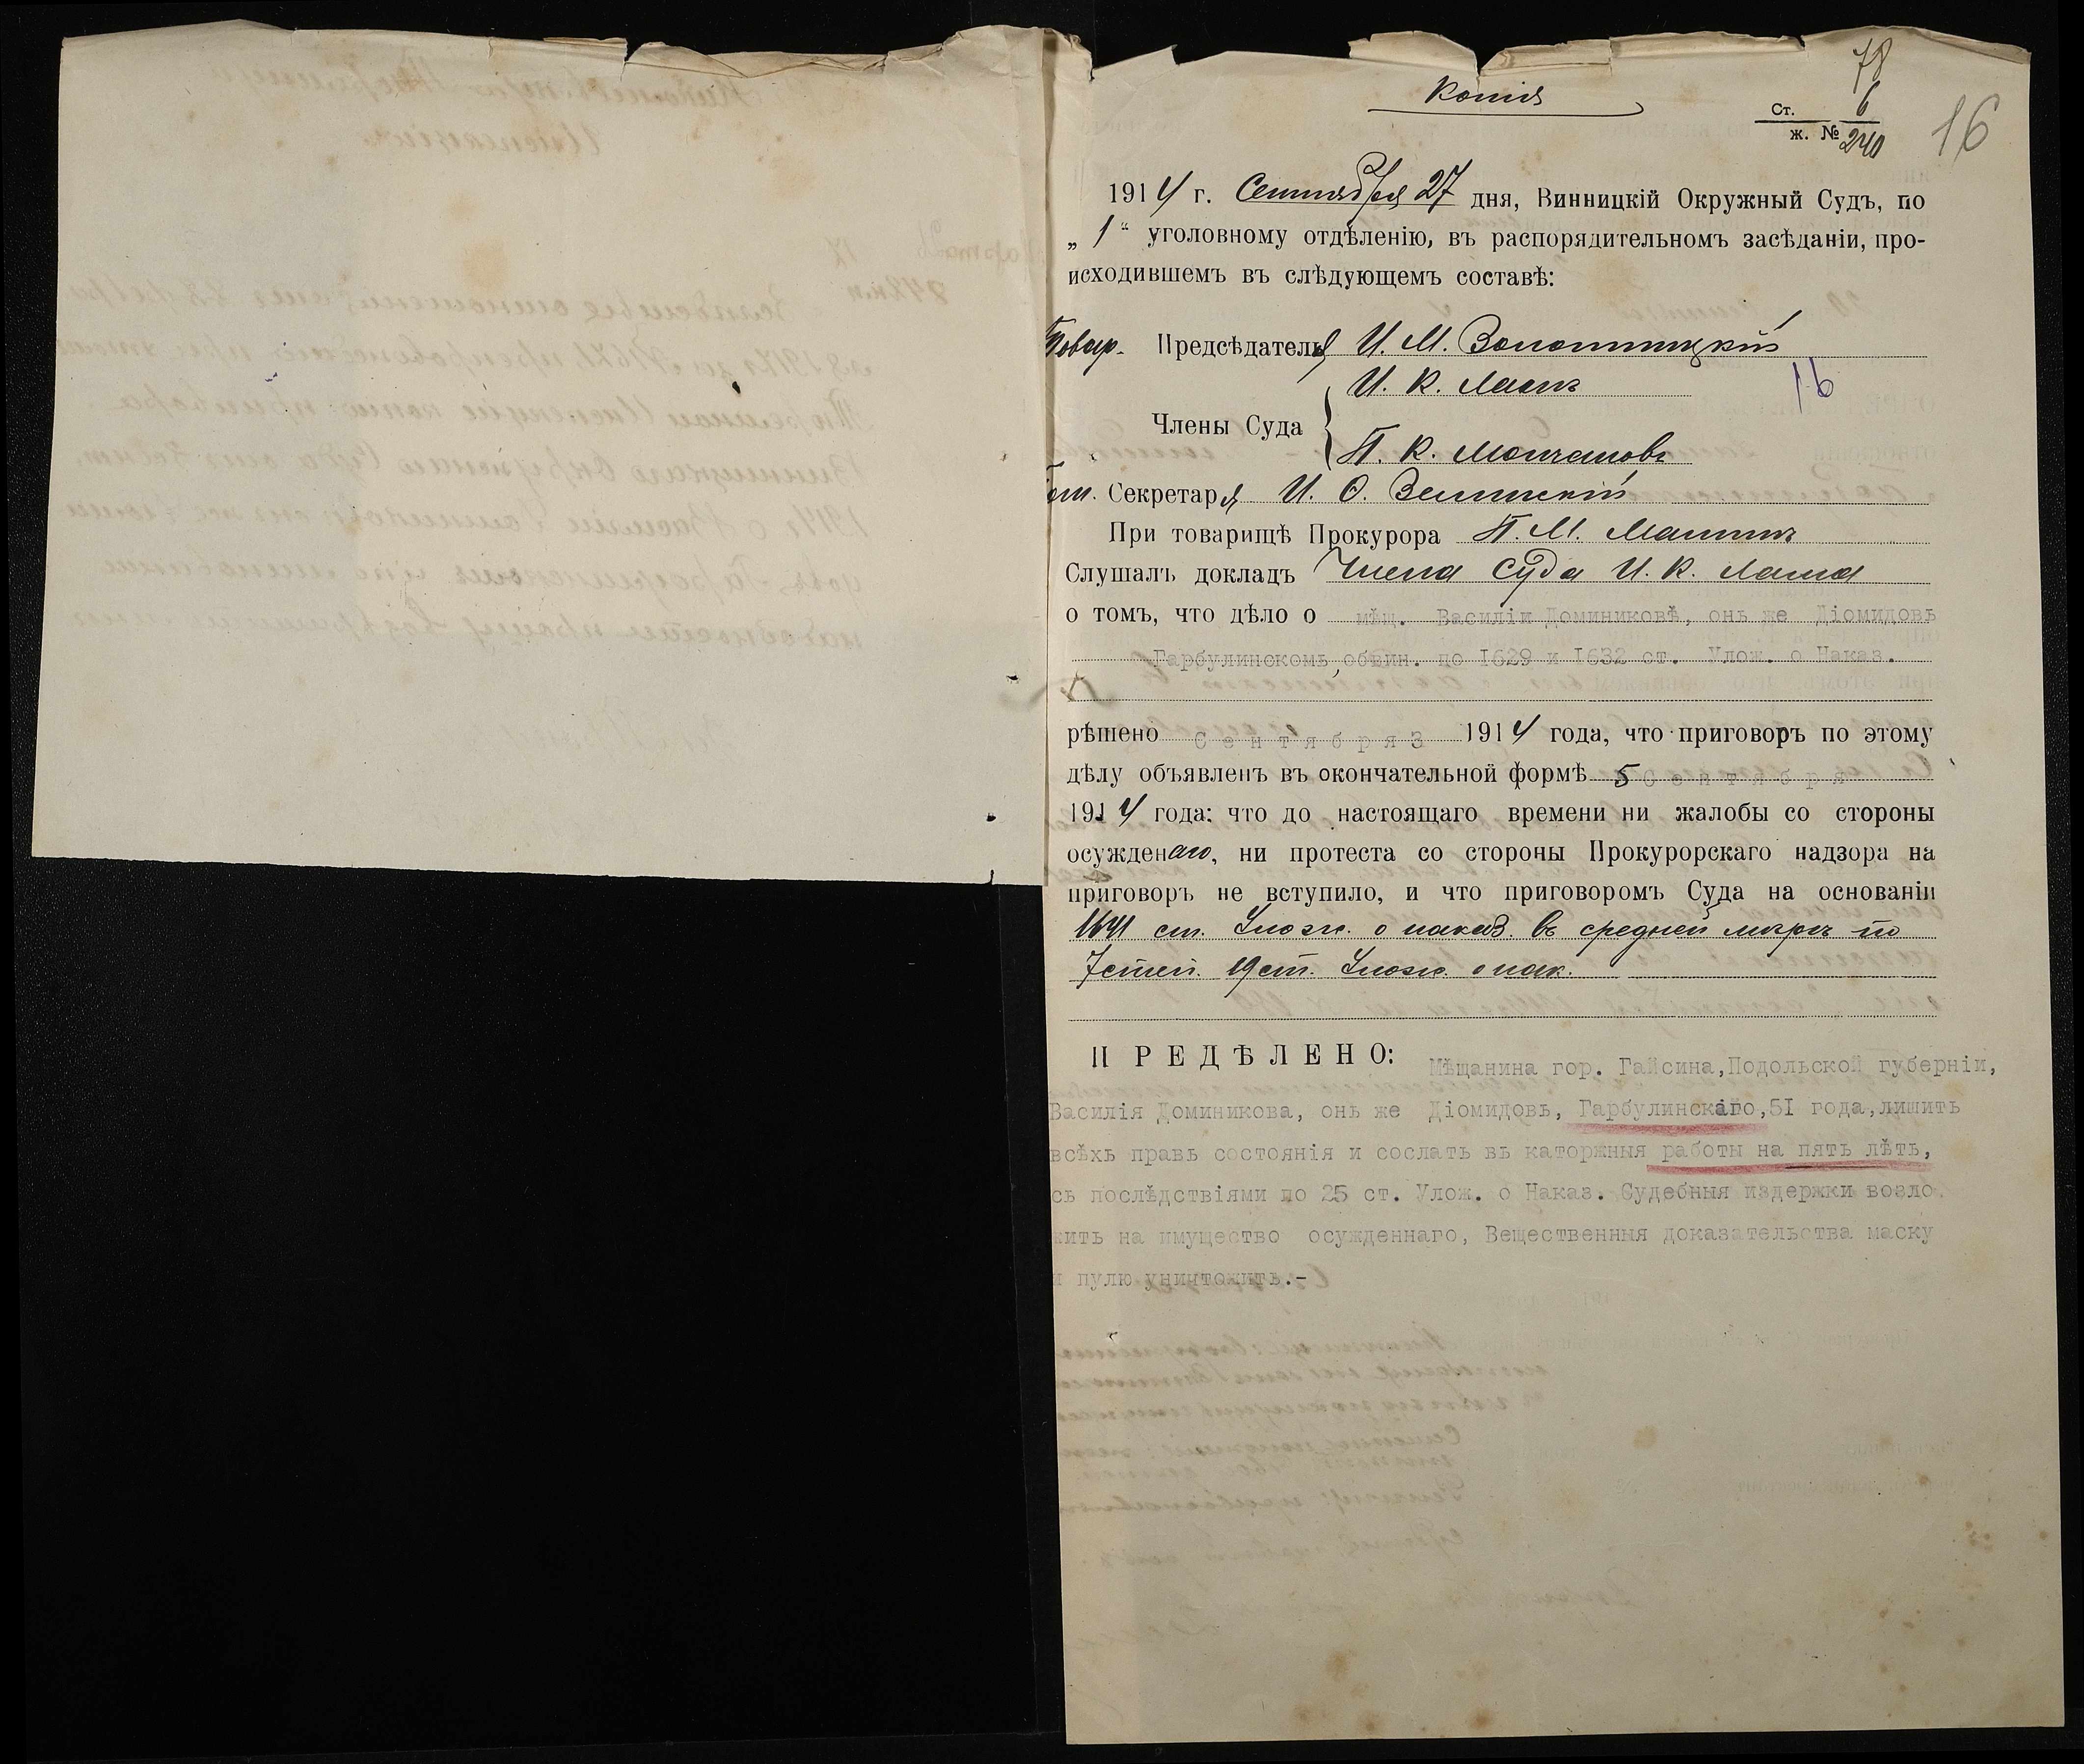 Копія
78
Ст. 6
ж. № 240
16
1914 г. Сентября 27 дня, Винницкій Окружный Судъ, по
„ 1 “ уголовному отдѣленію, въ распорядительномъ засѣданіи, про-
исходившемъ въ слѣдующемъ составѣ:
Товар. Предсѣдателя И. М. Золотницкій
И. К. Лаппъ
16
Члены Суда
П. К. Молчановъ
Пом. Секретаря И. О. Зелинскій
При товарищѣ Прокурора П. М. Малинъ
Слушалъ докладъ Члена Суда И. К. Лаппа
о томъ, что дѣло о мѣщ. Василіи Доминиковѣ, онъ же Діомидовъ
Гарбулинскомъ, обвин. по 1629 и 1632 ст. Улож. о Наказ.
рѣшено Сентября 3 1914 года, что приговоръ по этому
дѣлу объявленъ въ окончательной формѣ 5 Сентября
1914 года: что до настоящаго времени ни жалобы со стороны
осужденаго, ни протеста со стороны Прокурорскаго надзора на
приговоръ не вступило, и что приговоромъ Суда на основаніи
1641 ст. Улож. о наказ. въ средней мѣрѣ по
7 степ. 19 ст. Улож. о нак.
ПРЕДѢЛЕНО: Мѣщанина гор. Гайсина, Подольской губерніи,
Василія Доминикова, онъ же Діомидовъ, Гарбулинскаго, 51 года, лишить
всѣхъ правъ состоянія и сослать въ каторжныя работы на пять лѣтъ,
съ послѣдствіями по 25 ст. Улож. о Наказ. Судебныя издержки возло
жить на имущество осужденнаго, Вещественныя доказательства маску
и пулю уничтожить.-